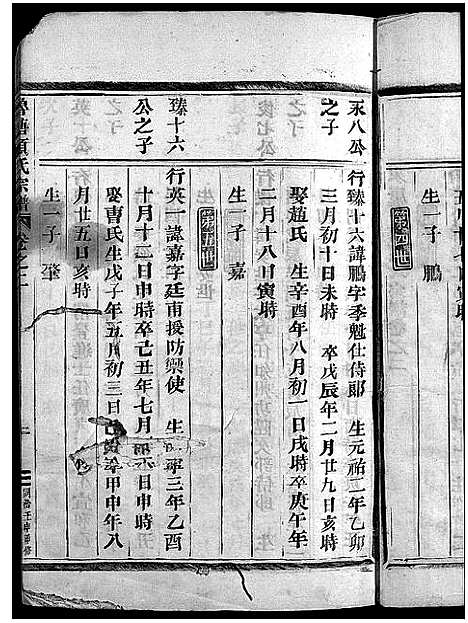 五月
寅時
生一子 鵬
第四世
永八公
之子
行臻十六諱鵬字季魁仕侍郎 生元祐二年乙卯
三月初十日未時 卒戊辰年二月廿九日亥時
娶趙氏 生辛酉年八月初一日戌時卒庚午年
二月十八日寅時
生一子 嘉
第五世
臻十六
公之子
行英一諱嘉字廷甫援防禦使 生 寧三年乙酉
十月十二日申時卒己丑年七月 日申時
娶曹氏生戊子年五月初三日 時卒甲申年八
月廿五日亥時
生一子 肇
氏宗譜 卷之二
同治壬申